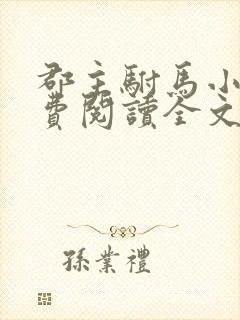 郡主駙馬小
費閱讀全文
孫業禮